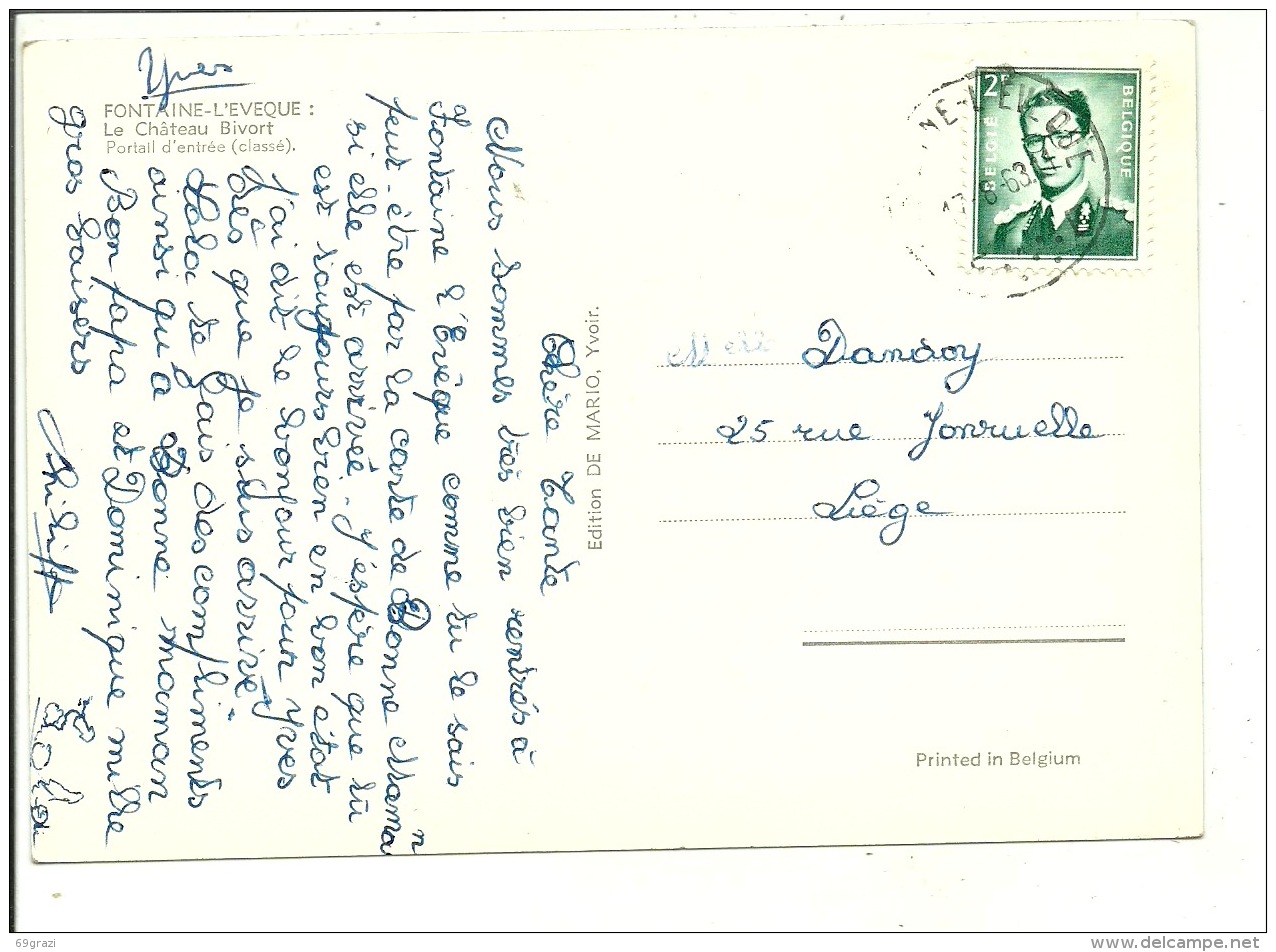 FONTAINE-L'EVEQUE :
Le Château Bivort
Portail d'entrée (classé).
Chère Tante
Nous sommes très bien rentrés à
Fontaine l'Évêque comme tu le sais
peut-être par la carte de Bonne Maman
si elle est arrivée. J'espère que tu
es toujours bien en bon état
J'ai dit le bonjour pour Yves
dès que je suis arrivé.
Lola te fais des compliments
ainsi qu'à Bonne maman
Bon papa et Dominique mille
gros baisers
Yves
Philippe
Lola
Edition DE MARIO, Yvoir.
2F
BELGIE
BELGIQUE
Melle Dandoy
25 rue Jonruelle
Liège
Printed in Belgium
69grazi
delcampe.net